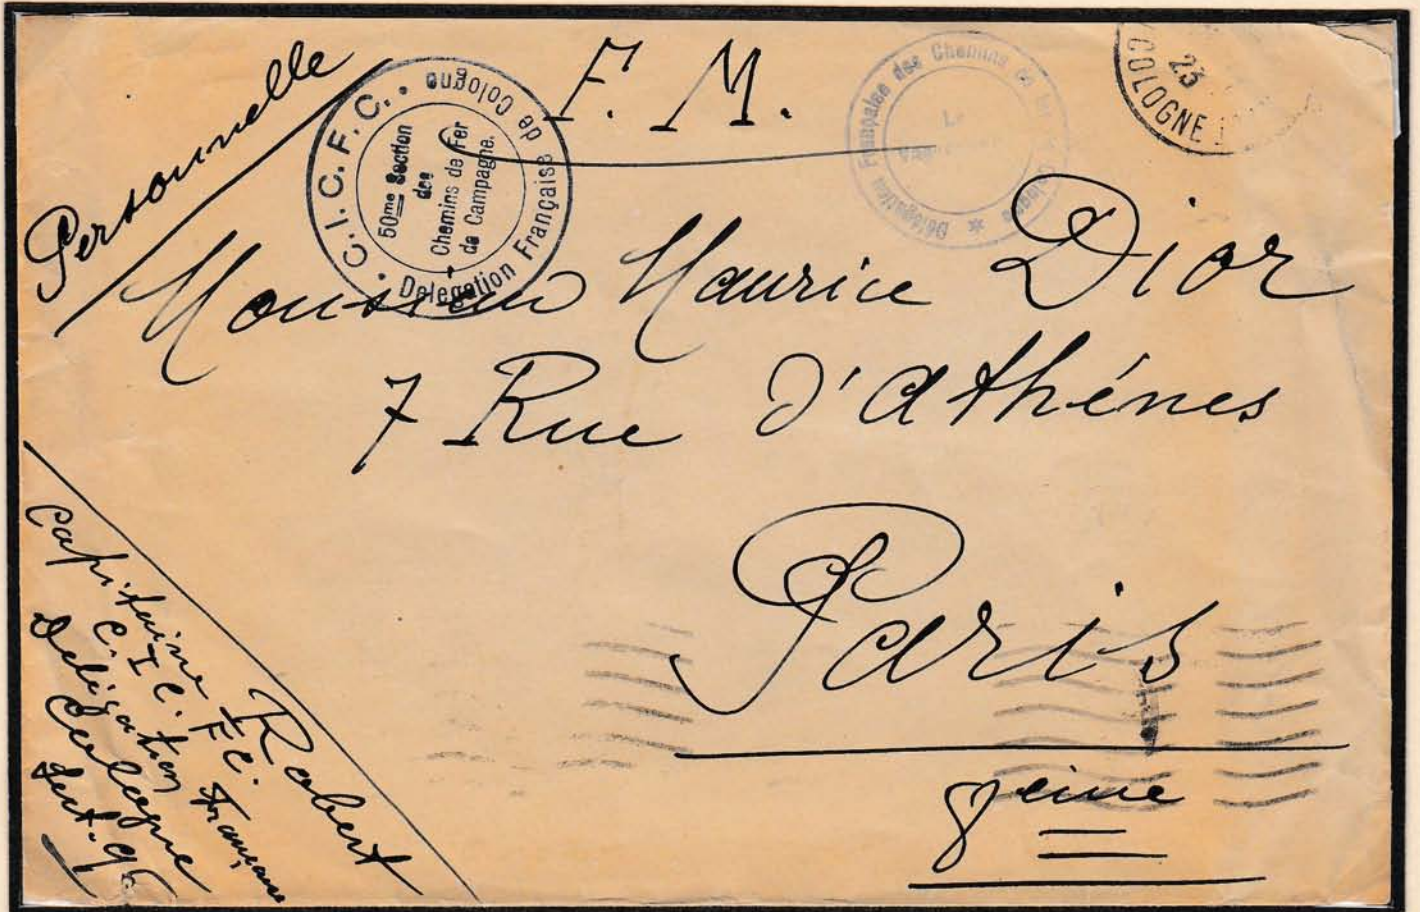 Personnelle
F. M.
C.I.C.F.C. • Delegation Française de Cologne •
50me Section
des
Chemins de Fer
de Campagne.
Délégation Française des Chemins de
COLOGNE
23
Monsieur Maurice Dior
7 Rue d'Athénes
Paris
9eime
Capitaine Robert
C.I.C.F.C.
Delégation Française
Cologne
Sect. 96